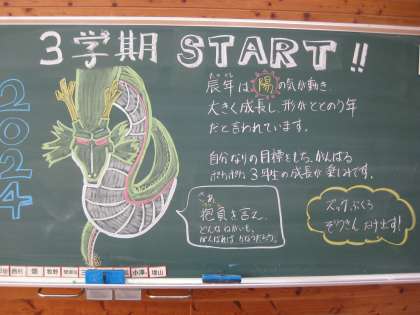 3学期 START!!
2024
辰年は陽の気が動き、
大きく成長し、形がととのう年
だと言われています。
自分なりの目標をもち、がんばる
3年生の成長が楽しみです。
さあ
抱負を言え。
どんなねがいも、
がんばれば かなうだろう。
ズックぶくろ
ぞうきん だけ出す!
牧野
小澤
増山